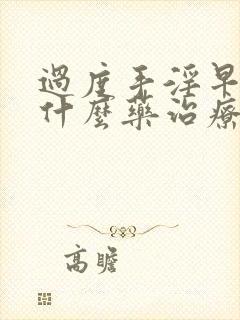 過度手淫早
什麼藥治療
高瞻